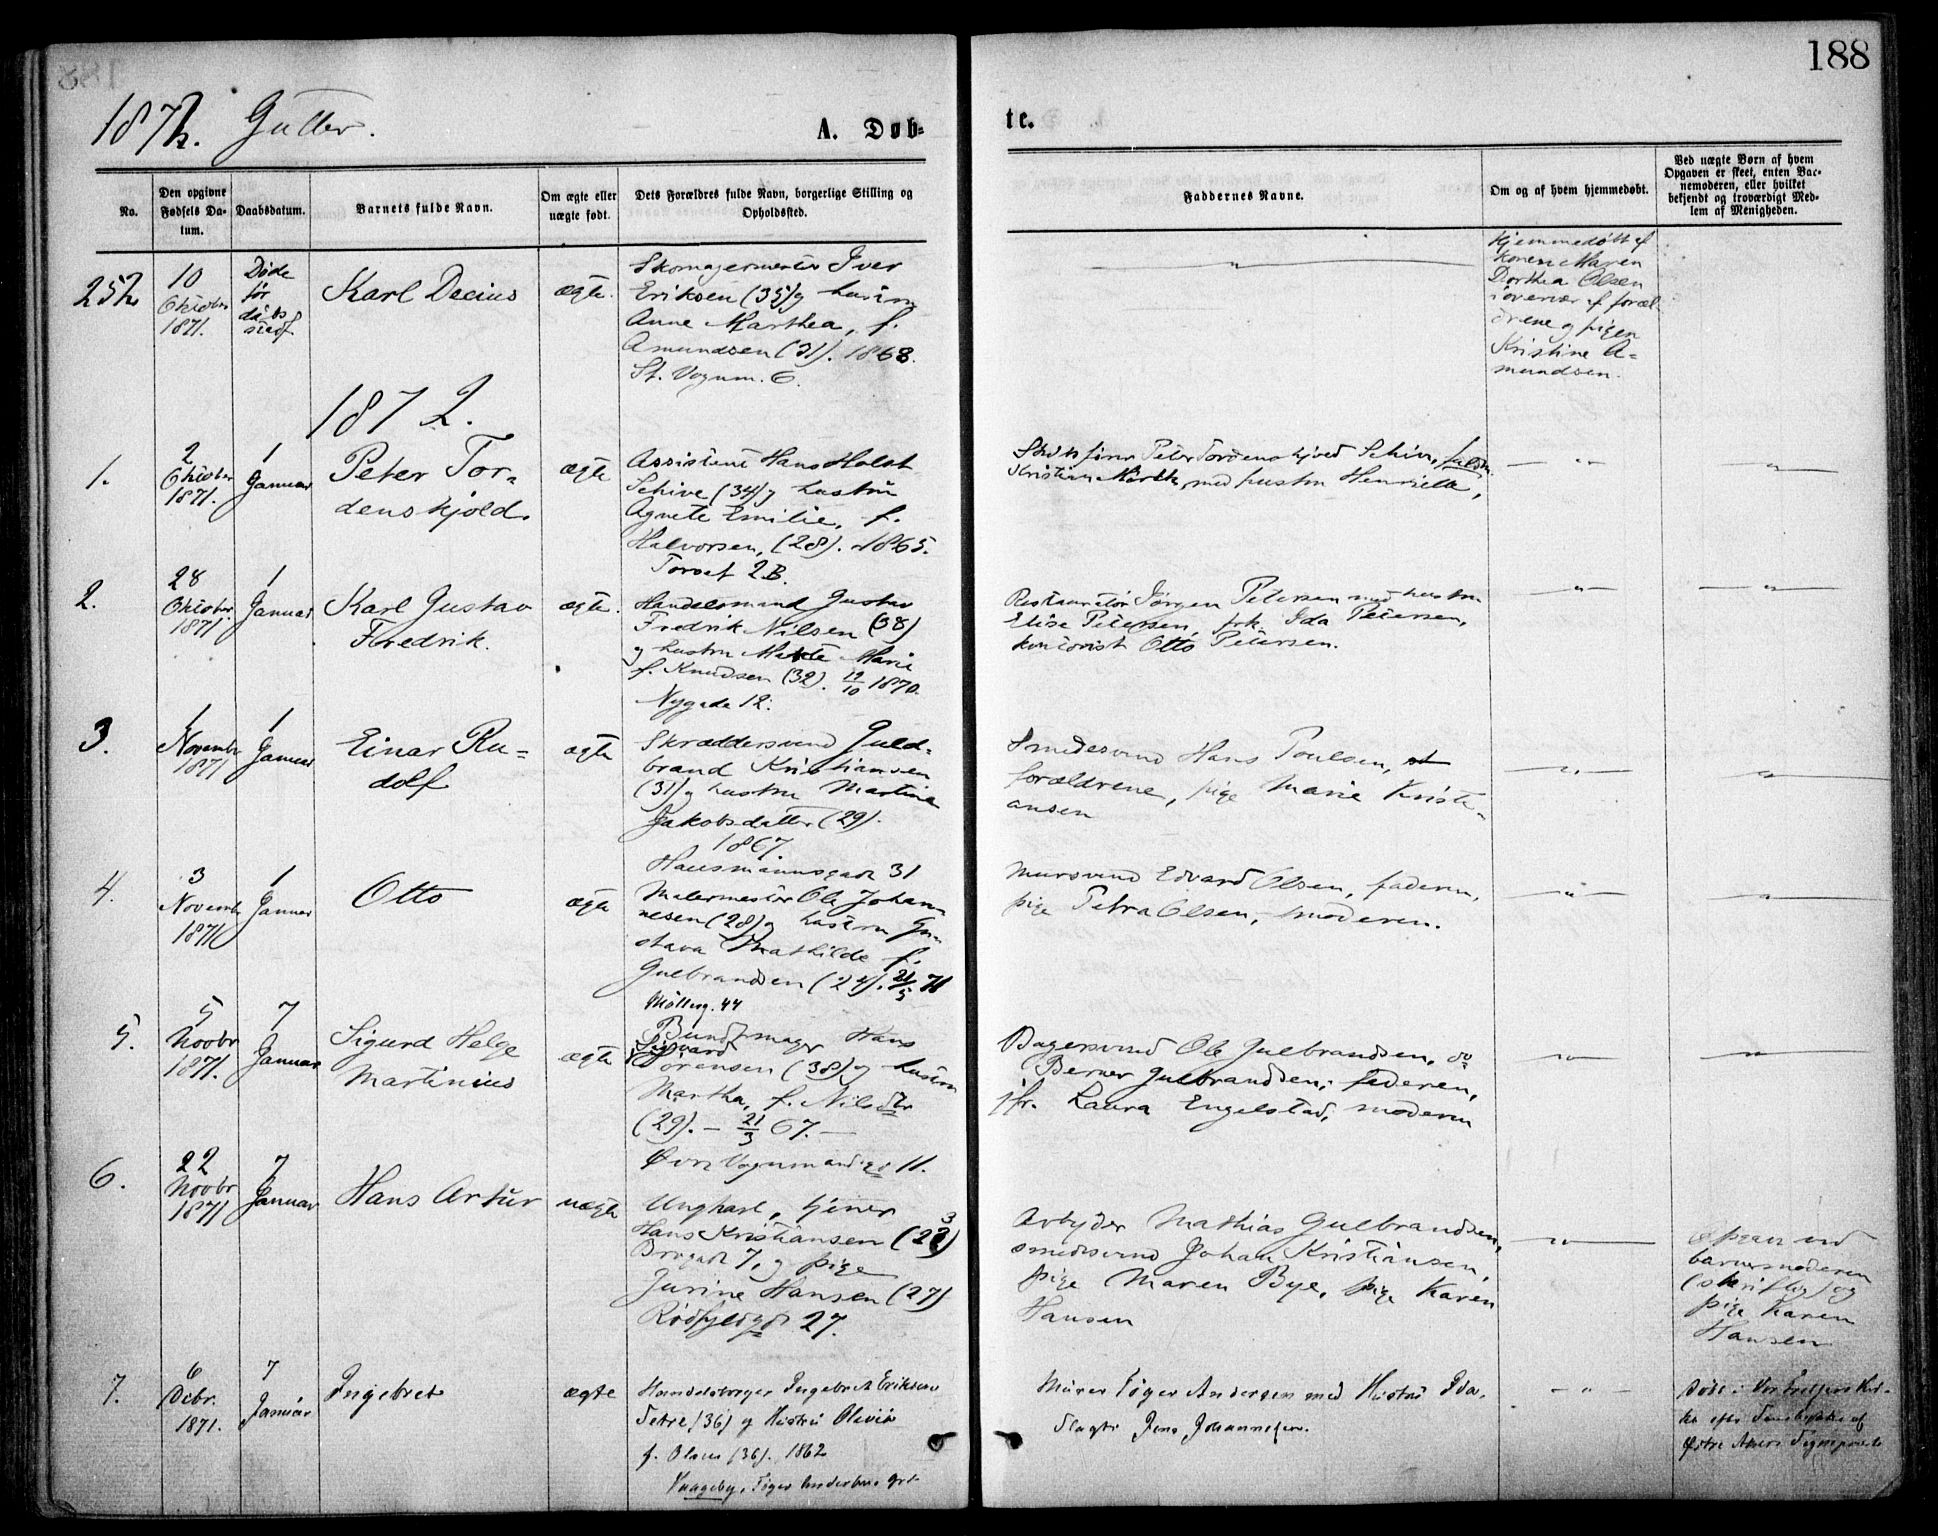 188
1872. Gutter.
A. Døb-
te.
No.
Den opgivne Fødsels Datum.
Daabsdatum.
Barnets fulde Navn.
Om ægte eller uægte født.
Dets Forældres fulde Navn, borgerlige Stilling og Opholdssted.
Faddernes Navne.
Om og af hvem hjemmedøbt.
Ved uægte Børn af hvem Opgaven er skeet, enten Barnemoderen, eller hvilket bekjendt og troværdigt Medlem af Menigheden.
252
10
Oktober
1871.
Døde
før
daabs
stadf.
Karl Decius
ægte.
Skomagermester Iver
Eriksen (35) og hustru
Anne Marthea, f.
Amundsen (31). 1868.
St. Vognm. 6.
Hjemmedøbt af
konen Maren
Dorthea Olsen
i overvær af foræl-
drene og pigen
Kristine A-
mundsen.
1872.
1.
2
Oktober
1871.
1
Januar
Peter Tor-
denskjold.
ægte
Assistent Hans Holst
Schive (34) og hustru
Agnete Emilie, f.
Halvorsen, (28). 1865.
Torvet 2B.
Peter Tordenskjold Schive,
med hustru Henriette,
2.
28
Oktober
1871
1
Januar
Karl Gustav
Fredrik.
ægte.
Handelsmand Gustav
Fredrik Nilsen (38)
og hustru Marie
f. Knudsen (32). 12/10 1870.
Nygade 12.
Restauratør Jørgen Petersen med hustru
Elise Petersen, frk. Ida Petersen,
kontorist Otto Petersen.
3.
1
Novembr
1871
1
Januar
Einar Ru-
dolf
ægte
Skræddersvend Guld-
brand Kristiansen
(31) og hustru Martine
Jakobsdatter (29).
1867.
Hausmannsgade 31
Smedesvend Hans Poulsen,
forældrene, pige Marie Kristi-
ansen
4.
3
Novemb
1871
1
Januar
Otto
ægte
Malermester Ole Johan-
nesen (28) og hustru Gu-
stava Mathilde f.
Gulbrandsen (24). 21/5 71
Møllerg. 44
Mursvend Edvard Olsen, faderen,
pige Petra Olsen, moderen.
5.
5
Novbr
1871.
7
Januar
Sigurd Helge
Martinius
ægte
Bundtmager Hans
Sigvard
Sørensen (38) og hustru
Martha, f. Nilsdtr
(29). – 21/3 67. –
Øvre Vognmandsgd 11.
Bagersvend Ole Gulbrandsen, do
Berner Gulbrandsen, faderen,
jfr. Laura Engelstad, moderen
6.
22
Novbr
1871
7
Januar
Hans Artur
uægte
Ungkarl, tjener
Hans Kristiansen (23)
Brogade 7, og pige
Jurine Hansen (27)
Rødfyldgd 27.
Arbyder Mathias Gulbrandsen,
smedesvend Johan Kristiansen,
pige Maren Bye, pige Karen
Hansen
Opgav ved
barnemoderen
(skriftlig) og
pige Karen
Hansen
7.
6
Debr.
1871.
7
Januar
Ingebret
ægte
Handelsborger Ingebret Eriksen
Setre (36) og Hustru Olivia
f. Olsen (36). 1862
Vaageby,
Murer Tøger Andersen med Hustru Ida.
Slagter Jens Johannesen.
Døbt i Vor Frelsers Kir-
ke efter
Østre Akers Sognepræst